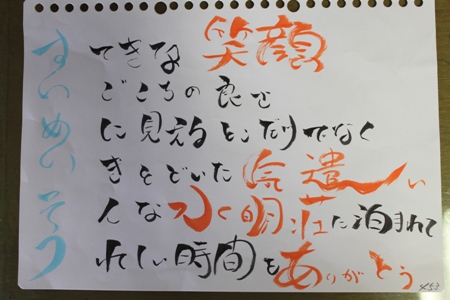 すいめいそう
てきな 笑顔
ごこちの良さ
に見えるとこだけでなく
きとどいた気遣い
んな水明荘に泊まれて
れしい時間をありがとう